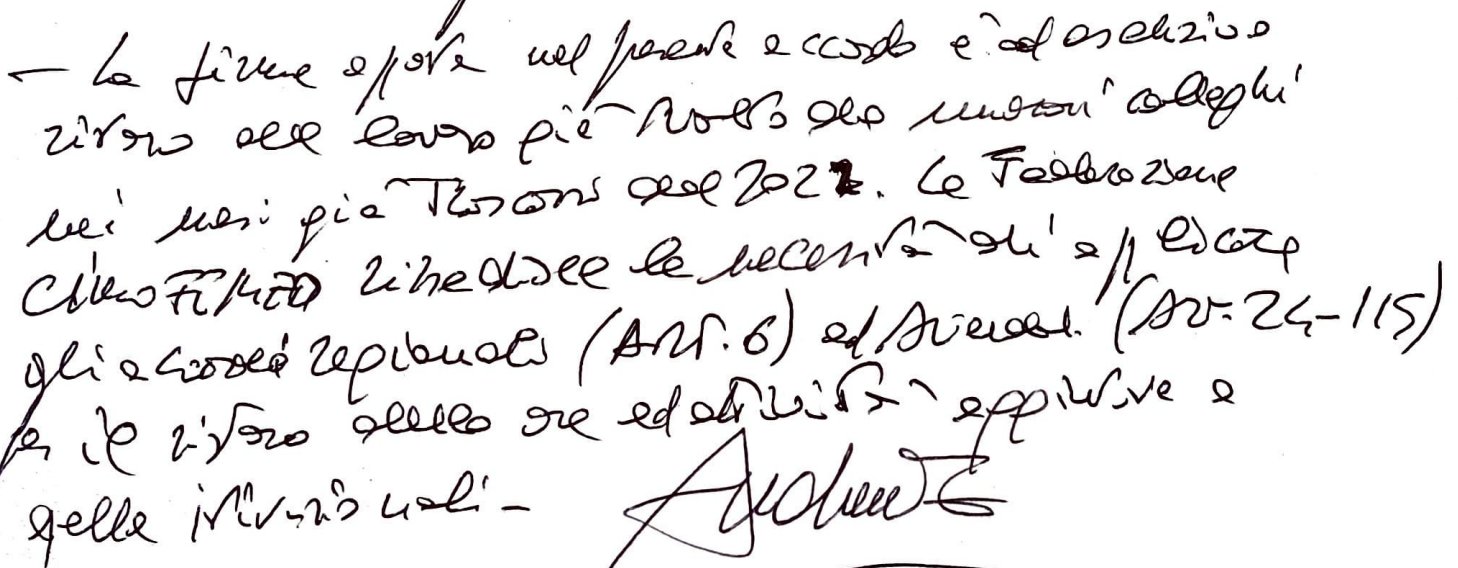 - La firma apposta nel presente accordo è ad esclusivo
ristoro del lavoro già svolto dai numerosi colleghi
nei mesi già trascorsi del 2021. La Federazione
CIMO FEMED ribadisce la necessità di applicare
gli accordi regionali (ART. 6) ed Aziendal. (Art. 24-115)
per il ristoro delle ore ed attività aggiuntive a
quelle istituzionali -